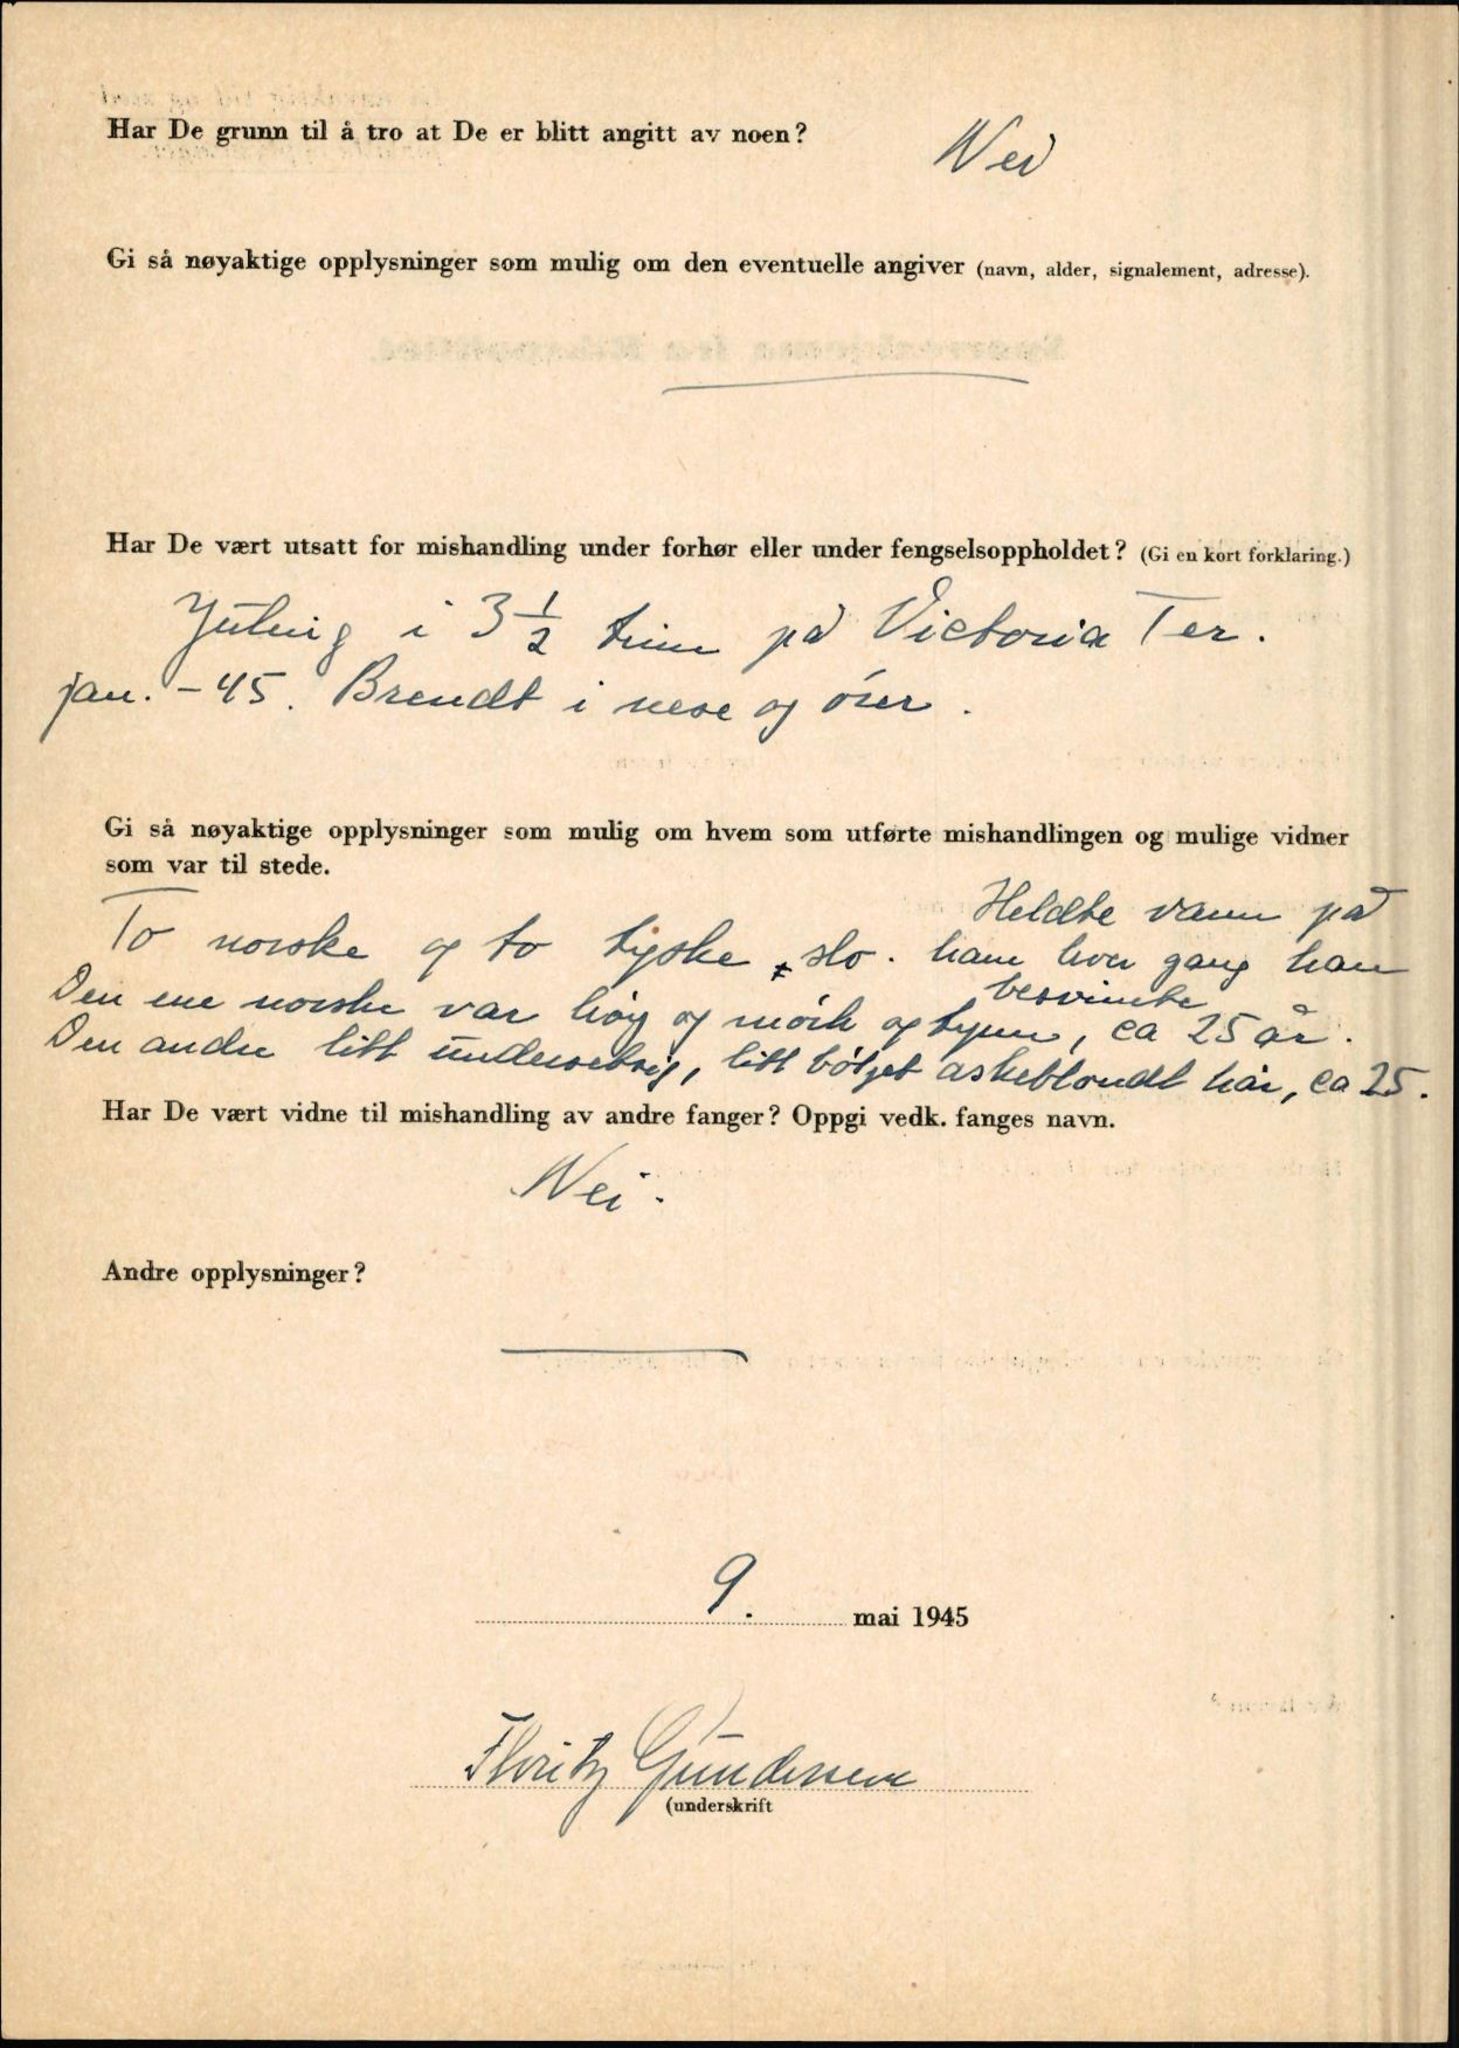 Har De grunn til å tro at De er blitt angitt av noen?
Nei
Gi så nøyaktige opplysninger som mulig om den eventuelle angiver (navn, alder, signalement, adresse).
Har De vært utsatt for mishandling under forhør eller under fengselsoppholdet? (Gi en kort forklaring.)
Juling i 3 1/2 time på Victoria Ter.
jan. -45. Brendt i nese og ører.
Gi så nøyaktige opplysninger som mulig om hvem som utførte mishandlingen og mulige vidner
som var til stede.
Heldte vann på
To norske og to tyske slo. ham hver gang han
besvimte
Den ene norske var høy og mörk og tynn, ca 25 år.
Den andre litt undersetsig, litt bölget askeblondt hår, ca 25.
Har De vært vidne til mishandling av andre fanger? Oppgi vedk. fanges navn.
Nei.
Andre opplysninger?
9. mai 1945
Gundersen
(underskrift